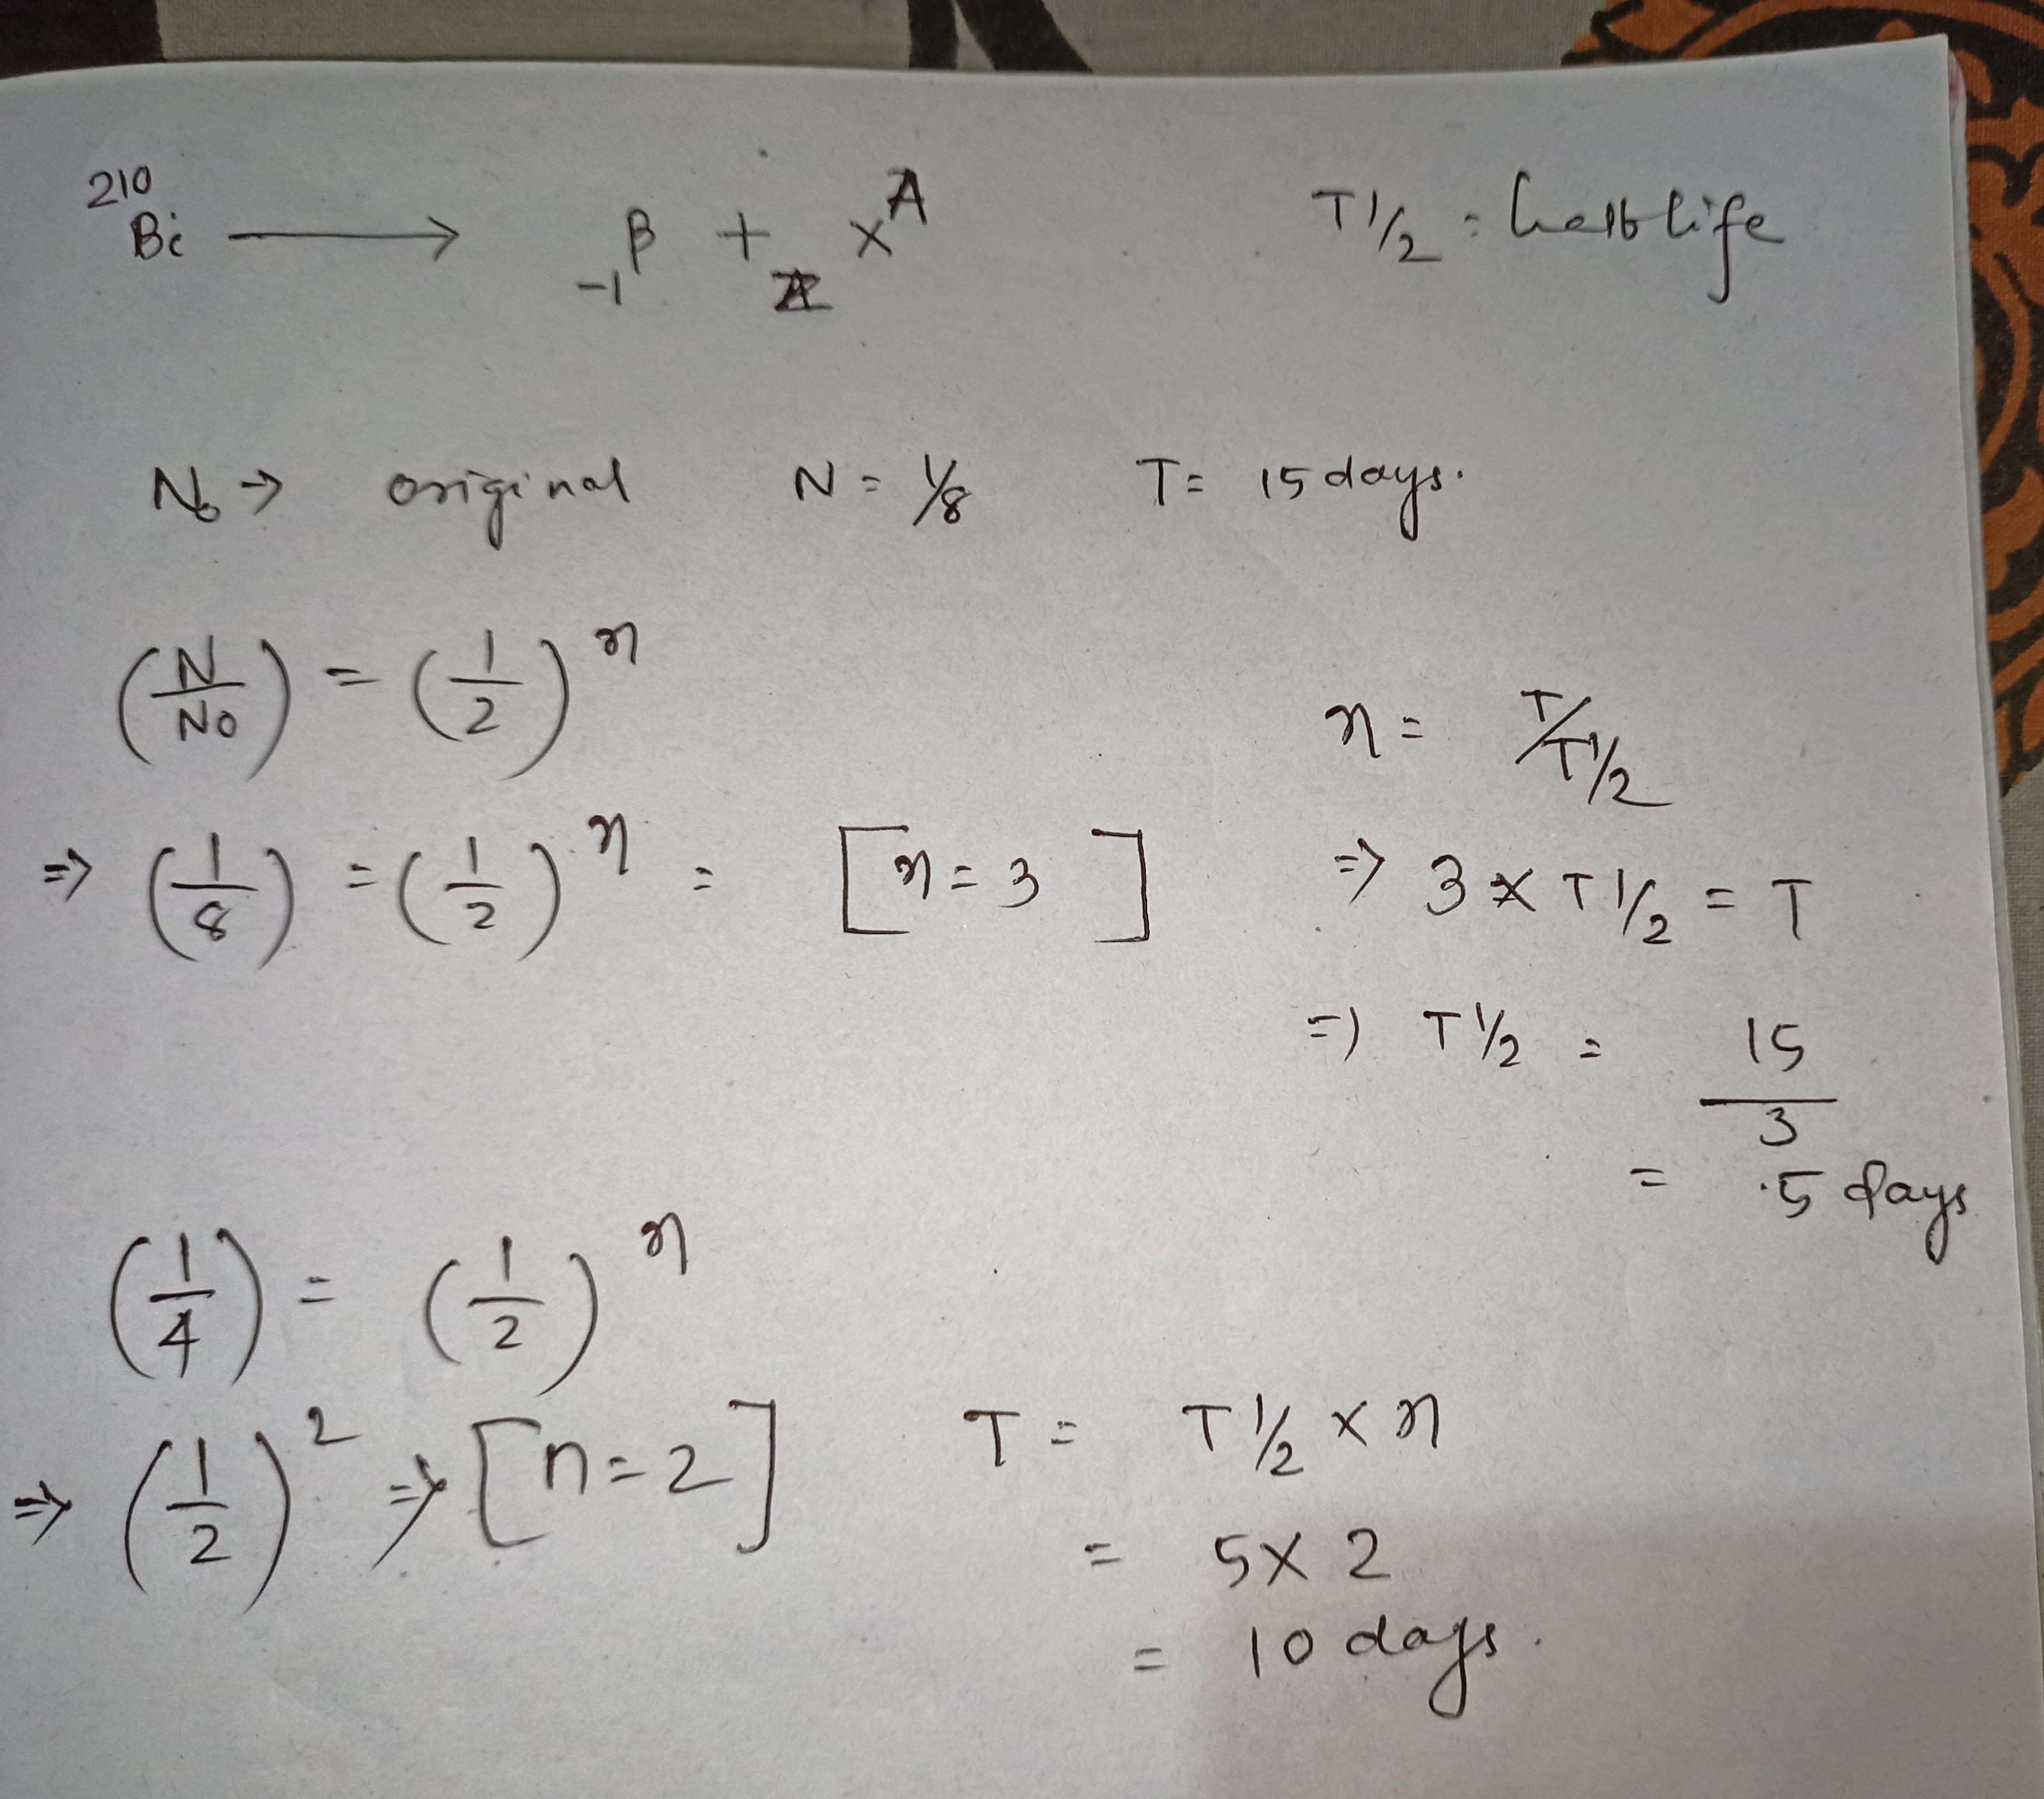 210
Bi → -1 β + Z X A    T1/2 = half life
N0 → original    N = 1/8    T = 15 days.
(N/N0) = (1/2)^n
n = T/T1/2
⇒ (1/8) = (1/2)^n = [n = 3]    ⇒ 3 × T1/2 = T
⇒ T1/2 = 15/3
= 5 days
(1/4) = (1/2)^n
⇒ (1/2)^2 ⇒ [n = 2]    T = T1/2 × n
= 5 × 2
= 10 days.